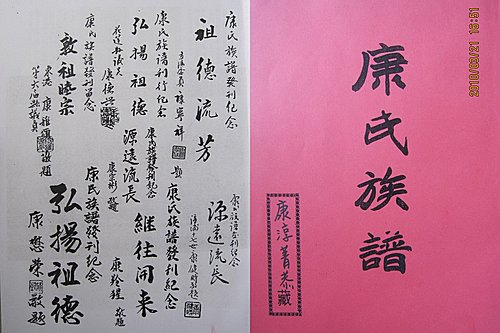 2010/03/21 16:51
康氏族譜
康淳菁恭藏
康氏族譜發刊紀念
祖德流芳
康氏族譜刊行紀念
弘揚祖德
康氏族譜發刊留念
敦祖睦宗
康氏族譜發刊紀念
源遠流長
康氏族譜發刊紀念
源遠流長
康氏族譜發刊紀念
繼往開来
康氏族譜發刊紀念
弘揚祖德
康懋榮 敬題